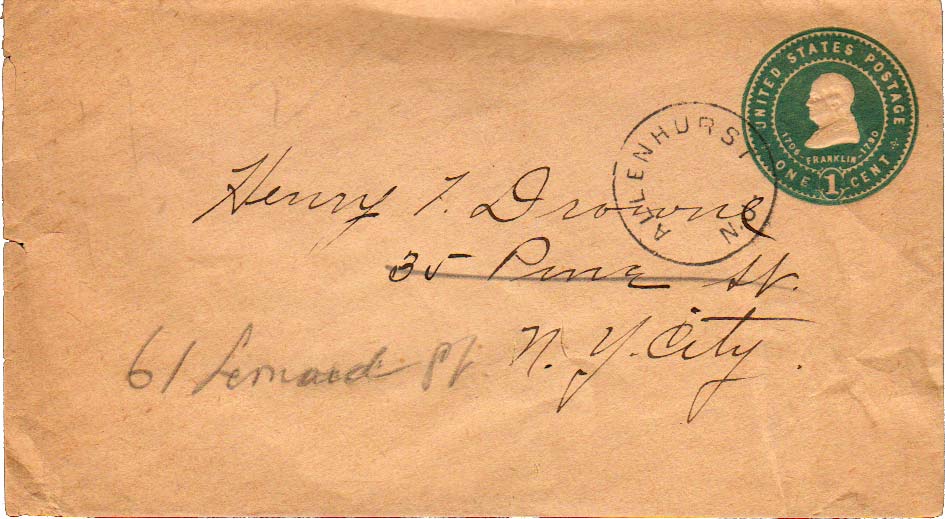 UNITED STATES POSTAGE
1706 FRANKLIN 1790
ONE 1 CENT
ALLENHURST N.J.
Henry T. Drowne
35 Pine St.
N. Y. City.
61 Leonard St.